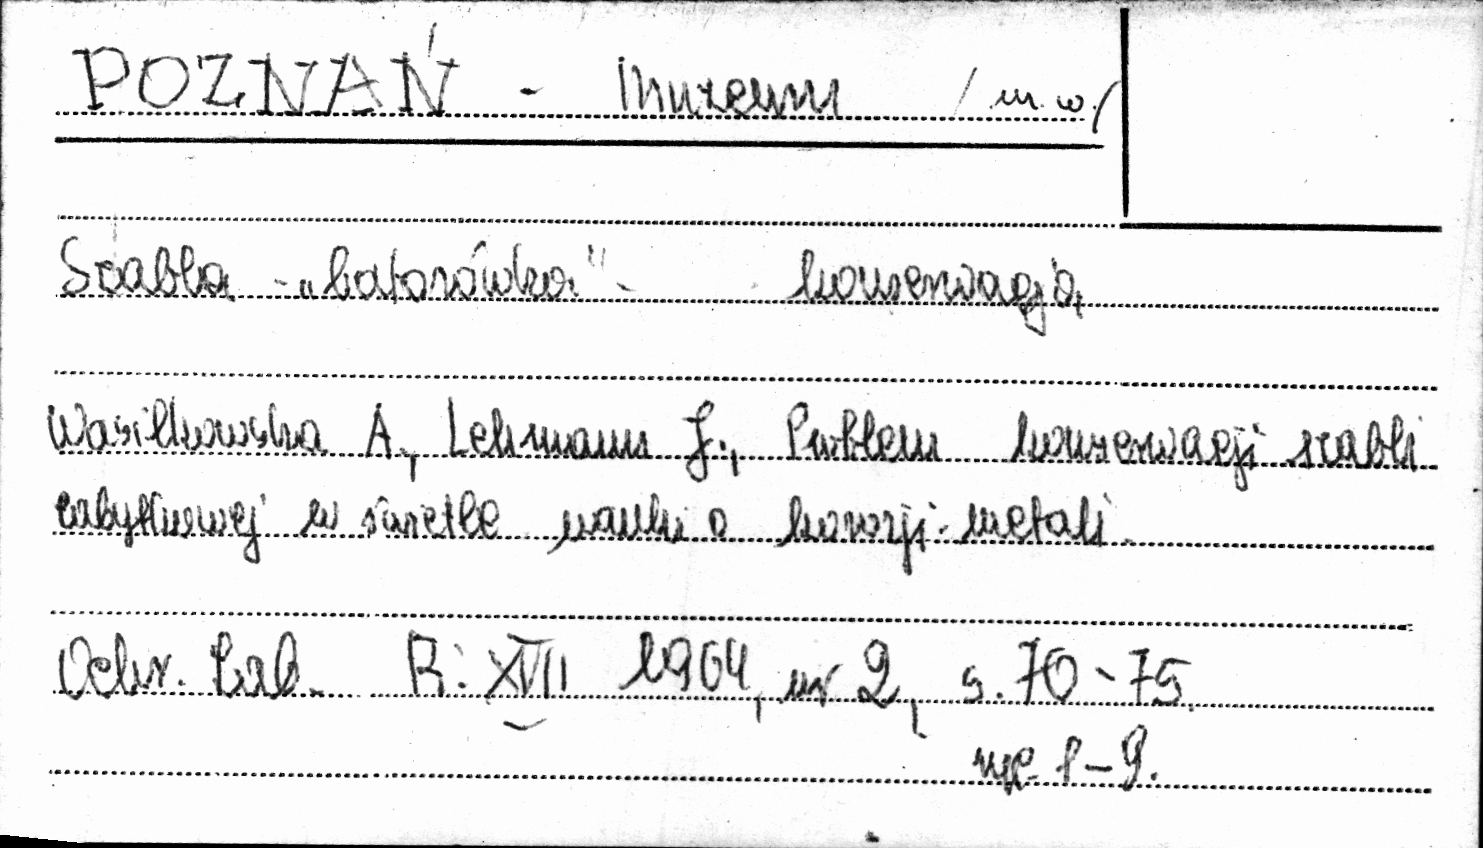 POZNAŃ - Muzeum /m.w./
Szabla - „batorówka" - konserwacja
Wasilkowska A., Lehmann J., Problem konserwacji szabli
zabytkowej w świetle nauki o korozji metali.
Ochr. Zab. R: XVII 1964, nr 2, s. 70-75.
ryc. 1-9.